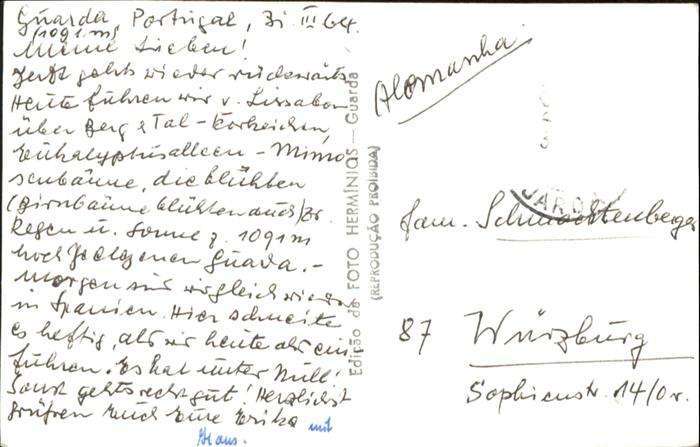 Guarda, Portugal, 31. III 64.
(1091 m)
Meine Lieben!
Jetzt gehts wieder rückwärts
Heute fuhren wir v. Lissabon
über Berg & Tal - Korkeichen,
Eukalyptusalleen - Mimo
senbäume, die blühten
(Birnbäume blühten auch)
Regen u. Sonne z. 1091 m
hoch gelegenen Guarda. -
Morgen sind wir gleich wieder
in Spanien. Hier schneite
es heftig, als wir heute abend ein
fuhren. Es hat unter Null!
Sonst gehts recht gut! Herzlichst
grüßen Euch Eure Erika mit
Klaus.
Edição da FOTO HERMÍNIOS — Guarda
(REPRODUÇÃO PROIBIDA)
Alemanha
Fam. Schmachtenberger
87 Würzburg
Sophienstr. 14/0 r.